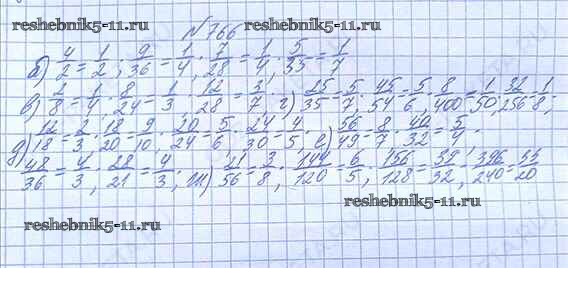 reshebnik5-11.ru №766 reshebnik5-11.ru
б) 4/2 = 1/2; 9/36 = 1/4; 7/28 = 1/4; 5/35 = 1/7
в) 2/8 = 1/4; 8/24 = 1/3; 12/28 = 3/7 г) 25/35 = 5/7; 45/54 = 5/6; 8/400 = 1/50; 32/256 = 1/8;
д) 12/18 = 2/3; 18/20 = 9/10; 20/24 = 5/6; 24/30 = 4/5; е) 56/49 = 8/7; 40/32 = 5/4;
48/36 = 4/3; 28/21 = 4/3; ж) 21/56 = 3/8; 144/120 = 6/5; 156/128 = 39/32; 396/240 = 33/20
reshebnik5-11.ru
reshebnik5-11.ru